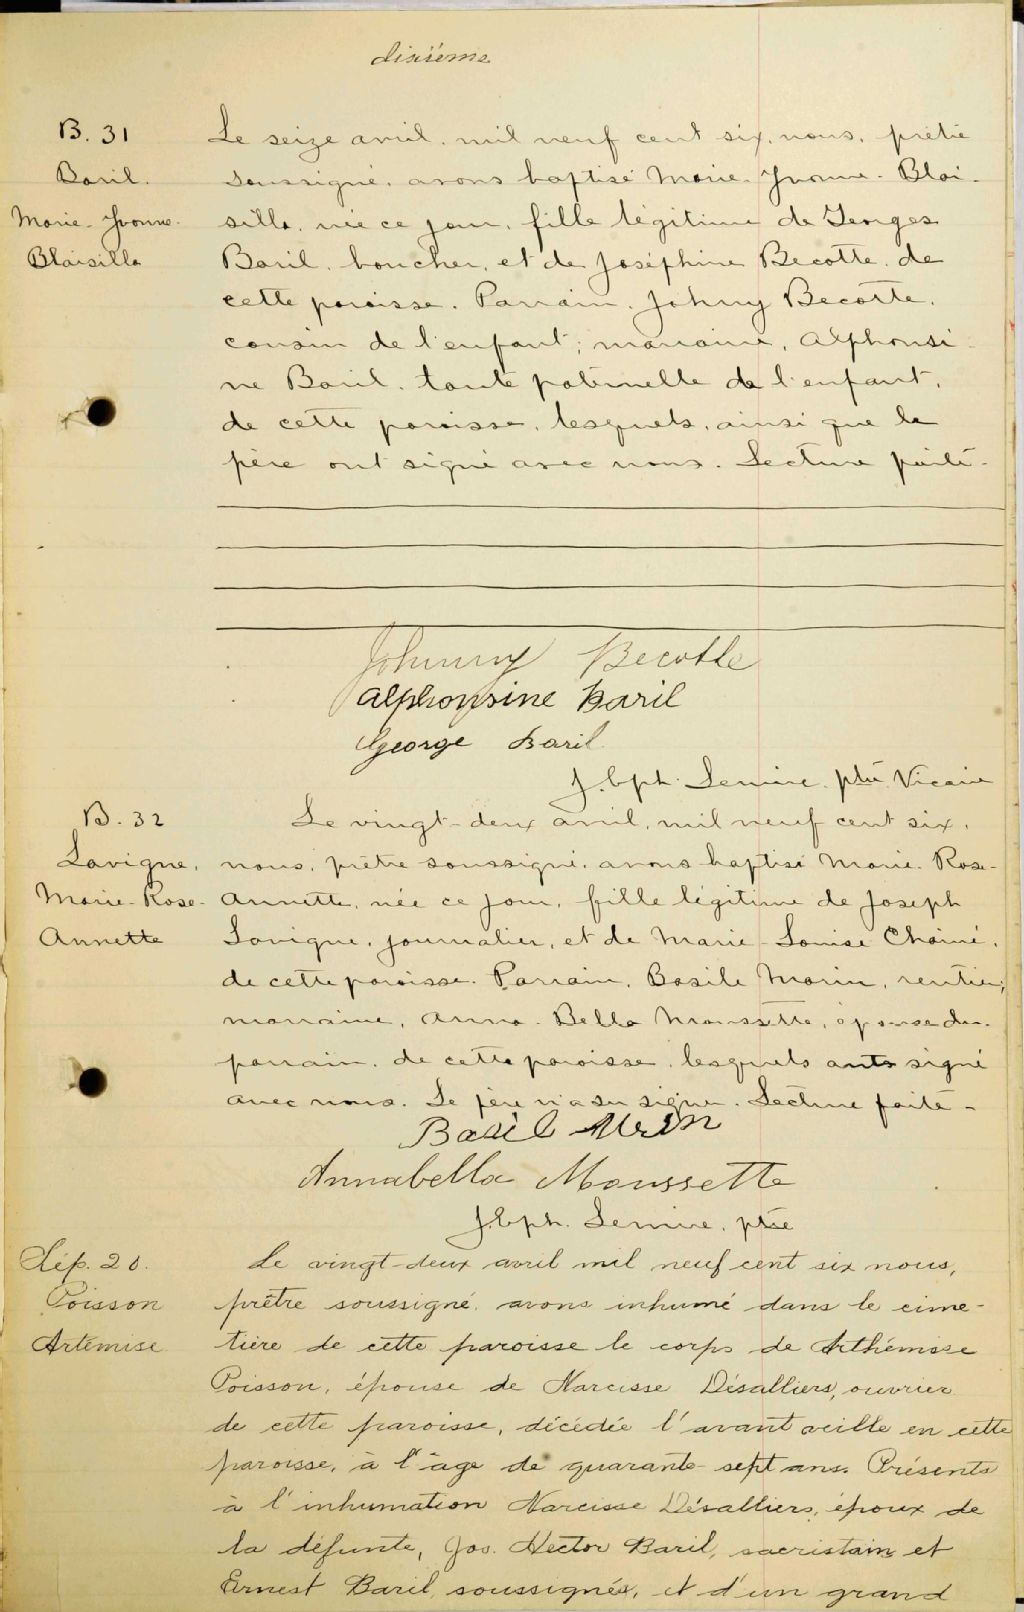 dixième
B. 31
Baril.
Marie-Yvonne-
Blaisilla
Le seize avril, mil neuf cent six, nous, prêtre
soussigné, avons baptisé Marie-Yvonne-Blai-
silla, née ce jour, fille légitime de Georges
Baril, boucher, et de Joséphine Becotte, de
cette paroisse. Parrain, Johny Becotte,
cousin de l'enfant; marraine, Alphonsi-
ne Baril, tante paternelle de l'enfant,
de cette paroisse, lesquels, ainsi que le
père ont signé avec nous. Lecture faite-
Johnny Becotte
Alphonsine Baril
George Baril
J. Bph. Lemire, ptre Vicaire
B. 32
Lavigne,
Marie-Rose-
Annette
Le vingt-deux avril, mil neuf cent six,
nous, prêtre soussigné, avons baptisé Marie-Rose-
Annette, née ce jour, fille légitime de Joseph
Lavigne, journalier, et de Marie-Louise Chaîné,
de cette paroisse. Parrain, Basile Morin, rentier;
marraine, Anna-Bella Moussette, épouse du
parrain, de cette paroisse, lesquels ont signé
avec nous. Le père n'a su signer. Lecture faite-
Basil
Annabella Moussette
J. Bph. Lemire, ptre
Sép. 20.
Poisson
Artémise
Le vingt-deux avril mil neuf cent six nous,
prêtre soussigné, avons inhumé dans le cime-
tière de cette paroisse le corps de Arthémise
Poisson, épouse de Narcisse Désalliers, ouvrier
de cette paroisse, décédée l'avant veille en cette
paroisse, à l'âge de quarante-sept ans. Présents
à l'inhumation Narcisse Désalliers, époux de
la défunte, Jos. Hector Baril, sacristain et
Ernest Baril, soussignés, et d'un grand